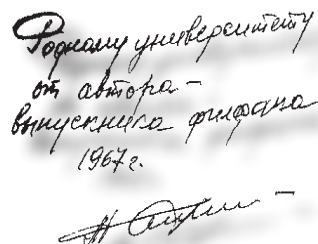 Родному университету
от автора –
выпускника филфака
1967 г.